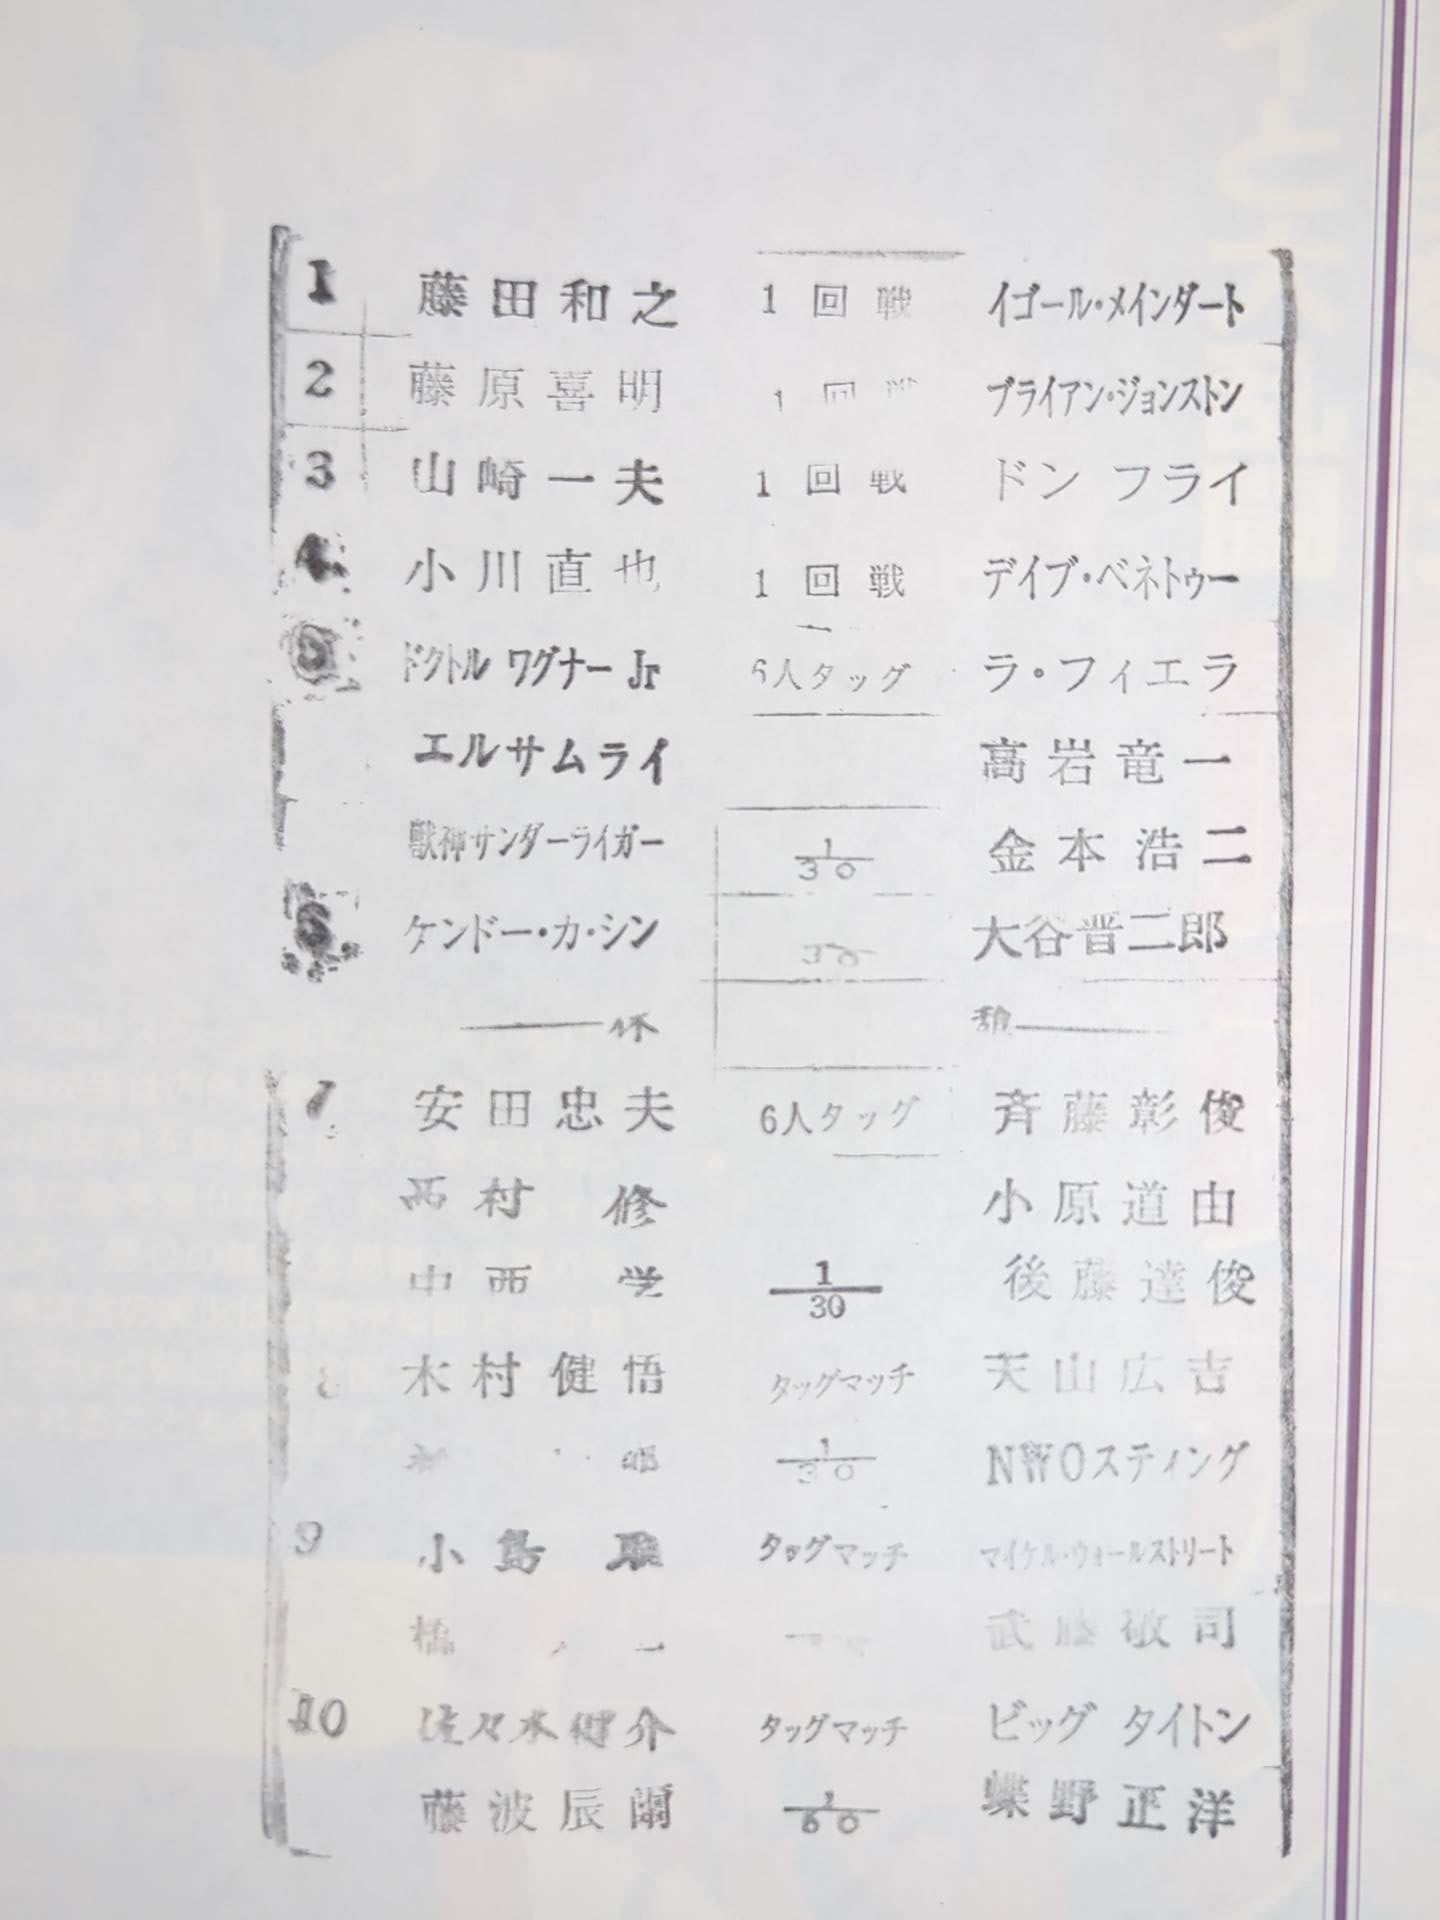 1 藤田和之 1回戦 イゴール・メインダート
2 藤原喜明 1回戦 ブライアン・ジョンストン
3 山崎一夫 1回戦 ドン フライ
4 小川直也 1回戦 デイブ・ベネトゥー
5 ドクトル ワグナー Jr 6人タッグ ラ・フィエラ
エルサムライ 高岩竜一
獣神サンダーライガー 1/30 金本浩二
6 ケンドー・カ・シン 30 大谷晋二郎
休 憩
7 安田忠夫 6人タッグ 斉藤彰俊
西村 修 小原道由
中西 学 1/30 後藤達俊
8 木村健悟 タッグマッチ 天山広吉
1/30 NWOスティング
9 小島 聡 タッグマッチ マイケル・ウォールストリート
橋 武藤敬司
10 佐々木健介 タッグマッチ ビッグ タイトン
藤波辰爾 1/60 蝶野正洋